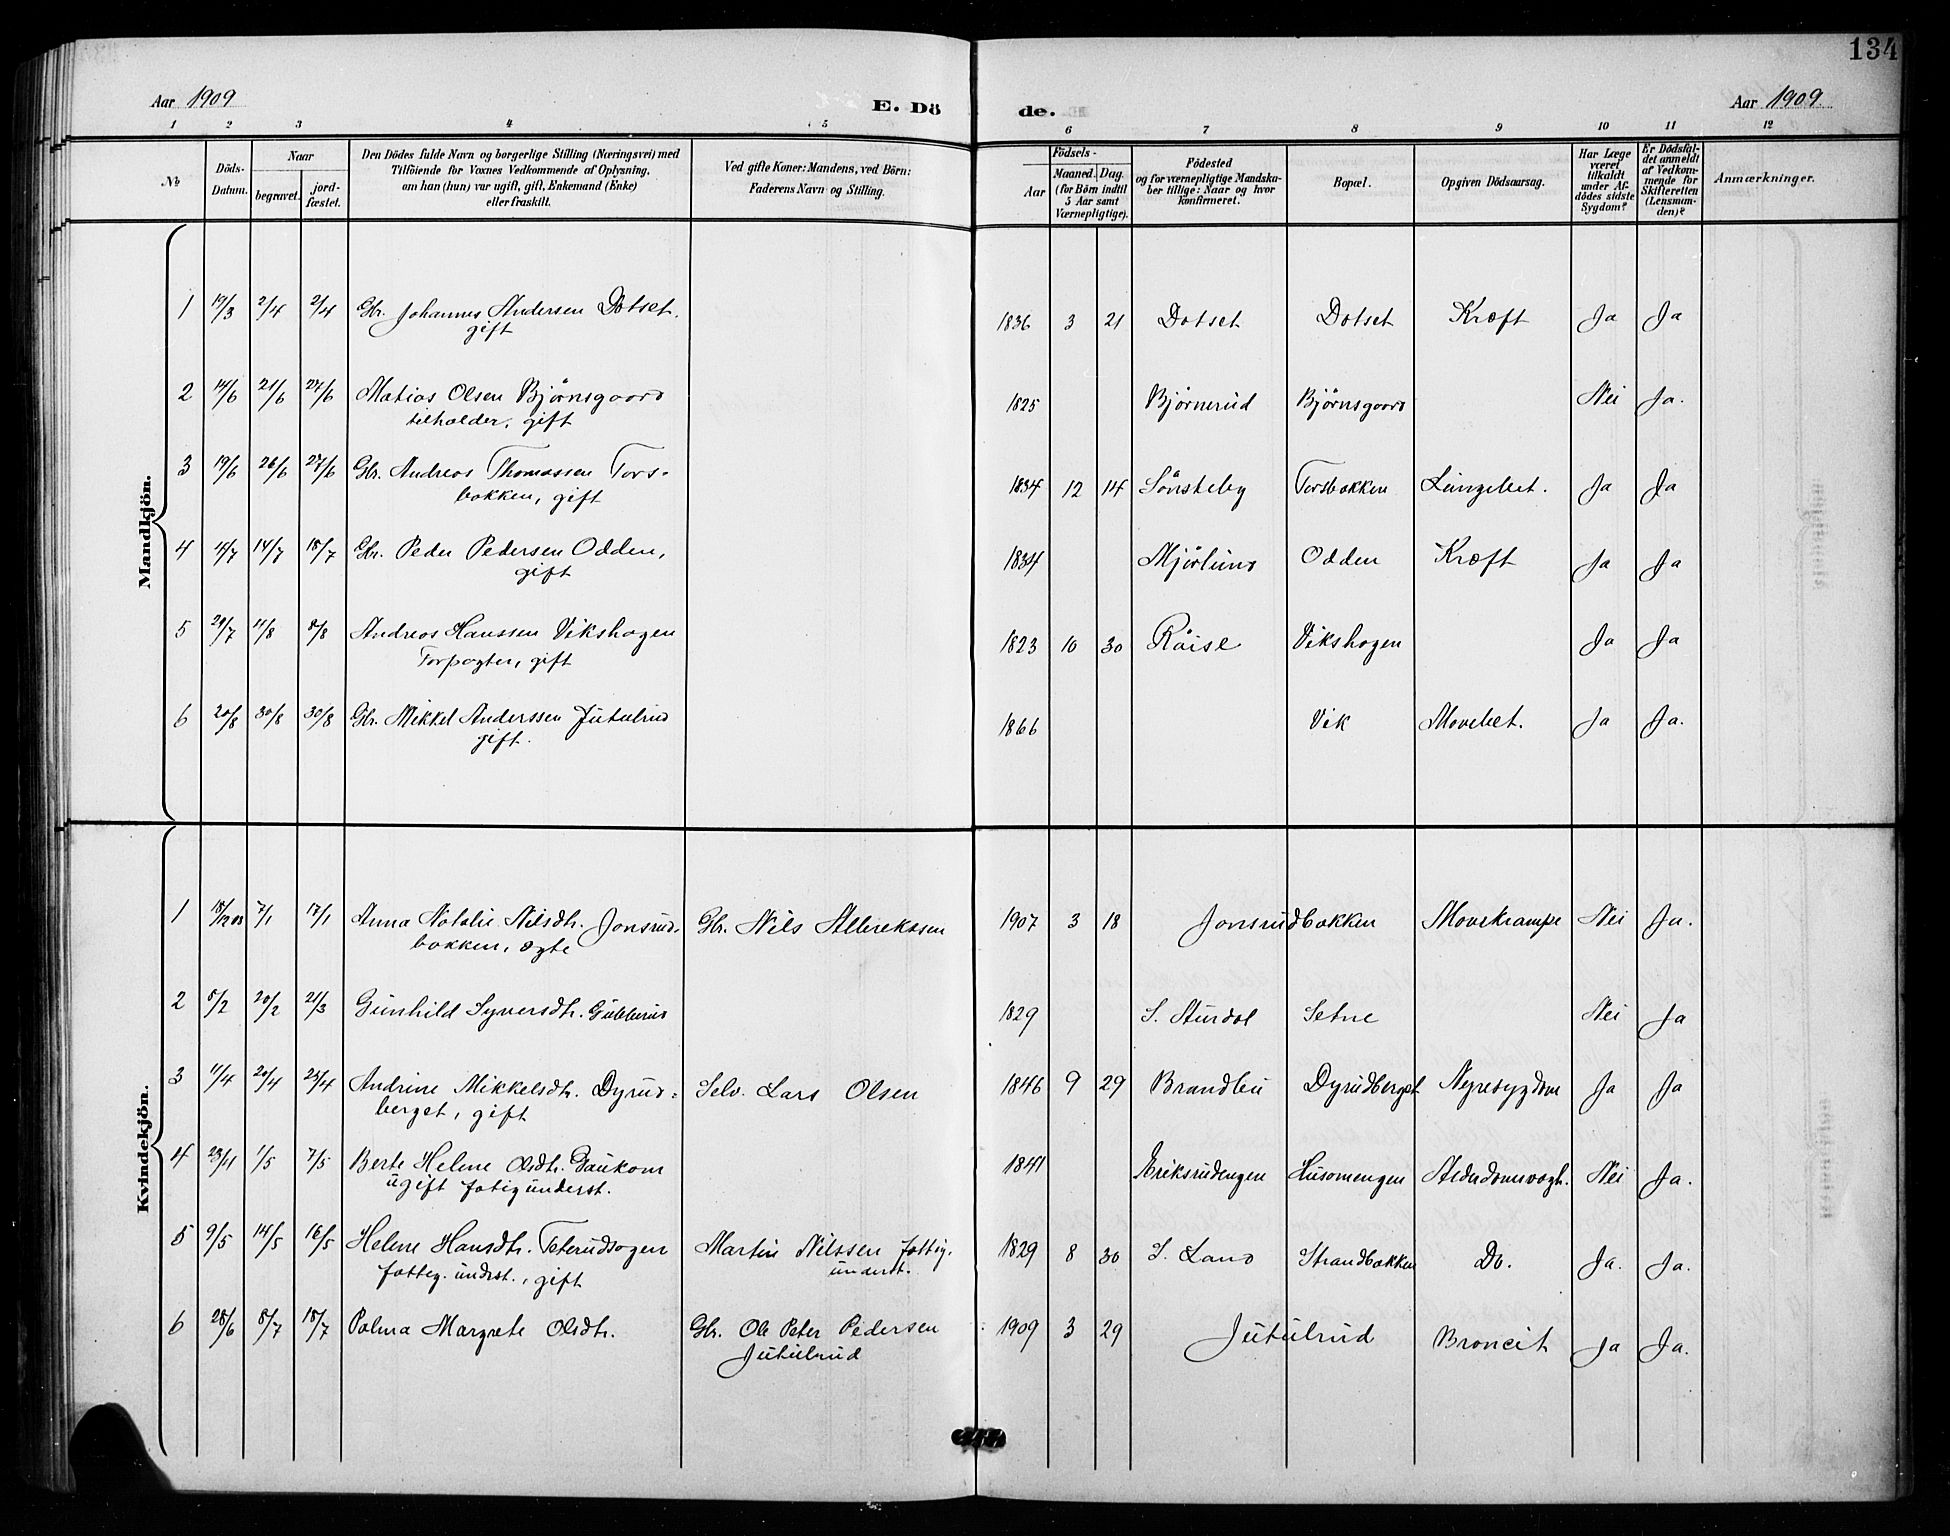 134
Aar 1909 E. Dö de. Aar 1909
1 2 3 4 5 6 7 8 9 10 11 12
No
Döds-Datum.
Naar
begravet.
jord-fæstet.
Den Dödes fulde Navn og borgerlige Stilling (Næringsvei) med
Tilföiende for Voxnes Vedkommende af Oplysning,
om han (hun) var ugift, gift, Enkemand (Enke)
eller fraskilt.
Ved gifte Koner: Mandens, ved Börn:
Faderens Navn og Stilling.
Födsels-
Aar
Maaned. Dag.
(for Börn indtil
5 Aar samt
Værnepligtige).
Födested
og for værnepligtige Mandska-
ber tillige: Naar og hvor
konfirmeret.
Bopæl.
Opgiven Dödsaarsag.
Har Læge
været
tilkaldt
under Af-
dödes sidste
Sygdom?
Er Dödsfal-
det anmeldt
af Vedkom-
mende for
Skifteretten
(Lensman-
den)?
Anmærkninger.
Mandkjön.
1 19/3 2/4 2/4 Gbr. Johannes Andersen Dotset. 1836 3 21 Dotset Dotset Kræft Ja Ja
gift
2 14/6 21/6 27/6 Matias Olsen Bjørnsgaard 1825 Bjørnerud Bjørnsgaard Nei Ja.
tilholder, gift
3 19/6 26/6 27/6 Gbr. Andreas Thomassen Tors- 1834 12 14 Sønsteby Torsbakken Lungebet. Ja Ja
bakken, gift
4 14/7 18/7 Gbr. Peder Pedersen Odden, 1834 Mjørlund Odden Kræft Ja Ja
gift
5 29/7 11/8 8/8 Andreas Hanssen Vikshagen 1823 10 30 Røise Vikshagen Ja Ja
Forpagter, gift
6 20/8 30/8 30/8 Gbr. Mikkel Anderssen Jutulrud 1866 Vik Mavebet. Ja Ja.
gift.
Kvindekjön.
1 18/12 08 7/1 17/1 Anna Natalie Nilsdtr. Jonsrud- Gbr. Nils Albrektsen 1907 3 18 Jonsrudbakken Mavekrampe Nei Ja.
bakken, ægte
2 8/2 20/2 21/3 Gunhild Syversdtr. Gubberud 1829 S. Aurdal Setne Nei Ja
3 11/4 20/4 25/4 Andrine Mikkelsdtr. Dyrud- Selv. Lars Olsen 1846 9 29 Brandbu Dyrudberget Nyresygdom Ja Ja
berget, gift
4 1/5 7/5 Berte Helene Olsdtr. Gaukom 1841 Eriksrudengen Husomengen Alderdomssvagh. Nei Ja.
ugift fatig underst.
5 9/5 14/5 16/5 Helene Hansdtr. Teterudsagen Martin Nilssen fattig. 1829 8 30 S. Land Strandbakken Do. Ja. Ja.
fatteg. underst., gift underst.
6 28/6 8/7 18/7 Palma Margrete Olsdtr. Gbr. Ole Peter Pedersen 1909 3 29 Jutulrud Broncit Ja Ja.
Jutulrud